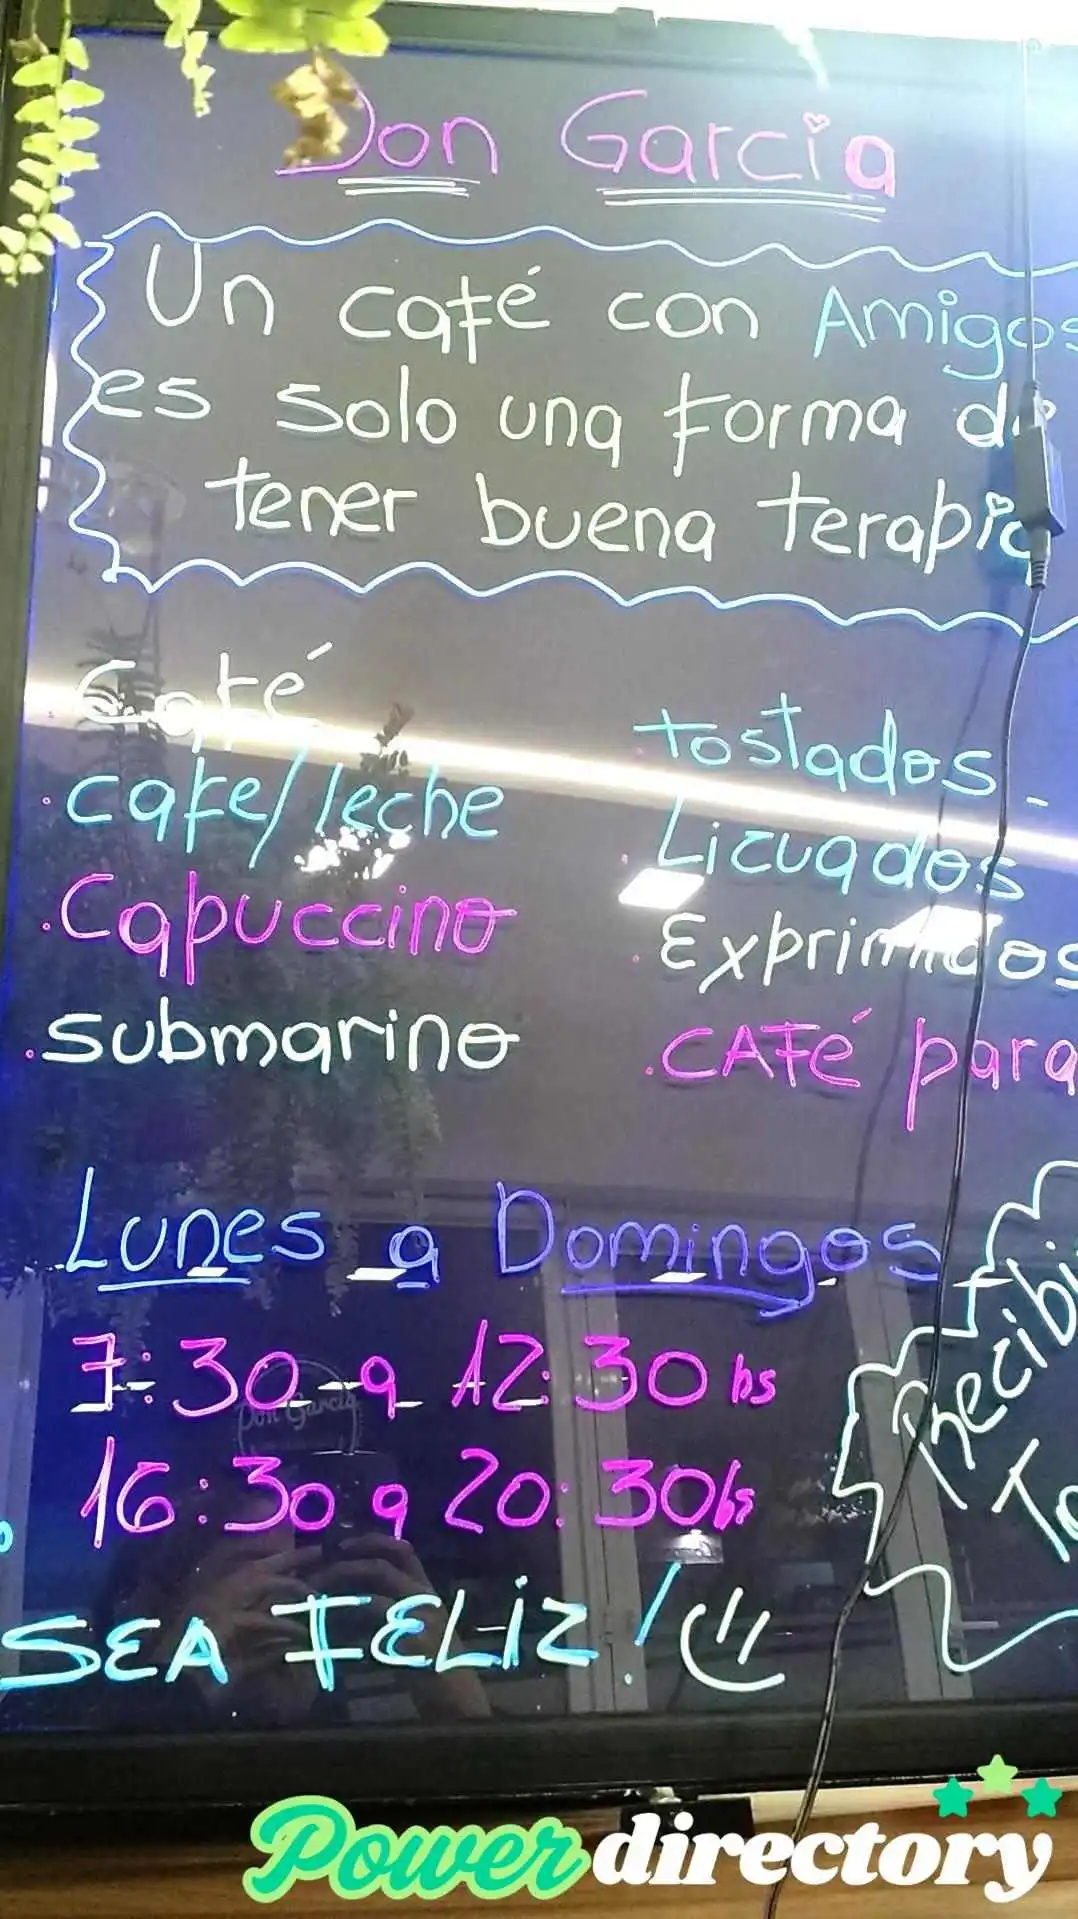 Don Garcia
Un café con Amigos
es solo una forma de
tener buena terapia
Café
· cafe/leche
· Capuccino
· submarino
· Tostados -
· Licuados
· Exprimidos
· CAFé para
Lunes a Domingos
7:30 a 12:30 hs
16:30 a 20:30hs
SEA FELiZ!
Don Garcia
Powerdirectory